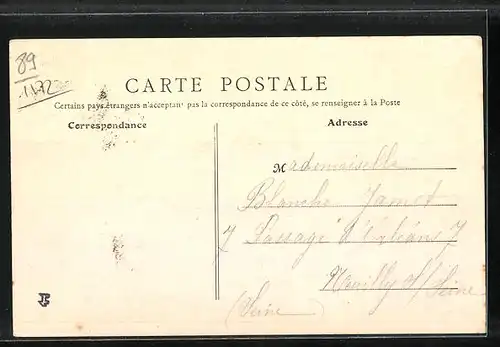 89
1172
CARTE POSTALE
Certains pays étrangers n'acceptant pas la correspondance de ce côté, se renseigner à la Poste
Correspondance
Adresse
Mademoiselle
Blanche Jamet
7 Passage d'Orléans 7
Neuilly s/ Seine
(Seine)